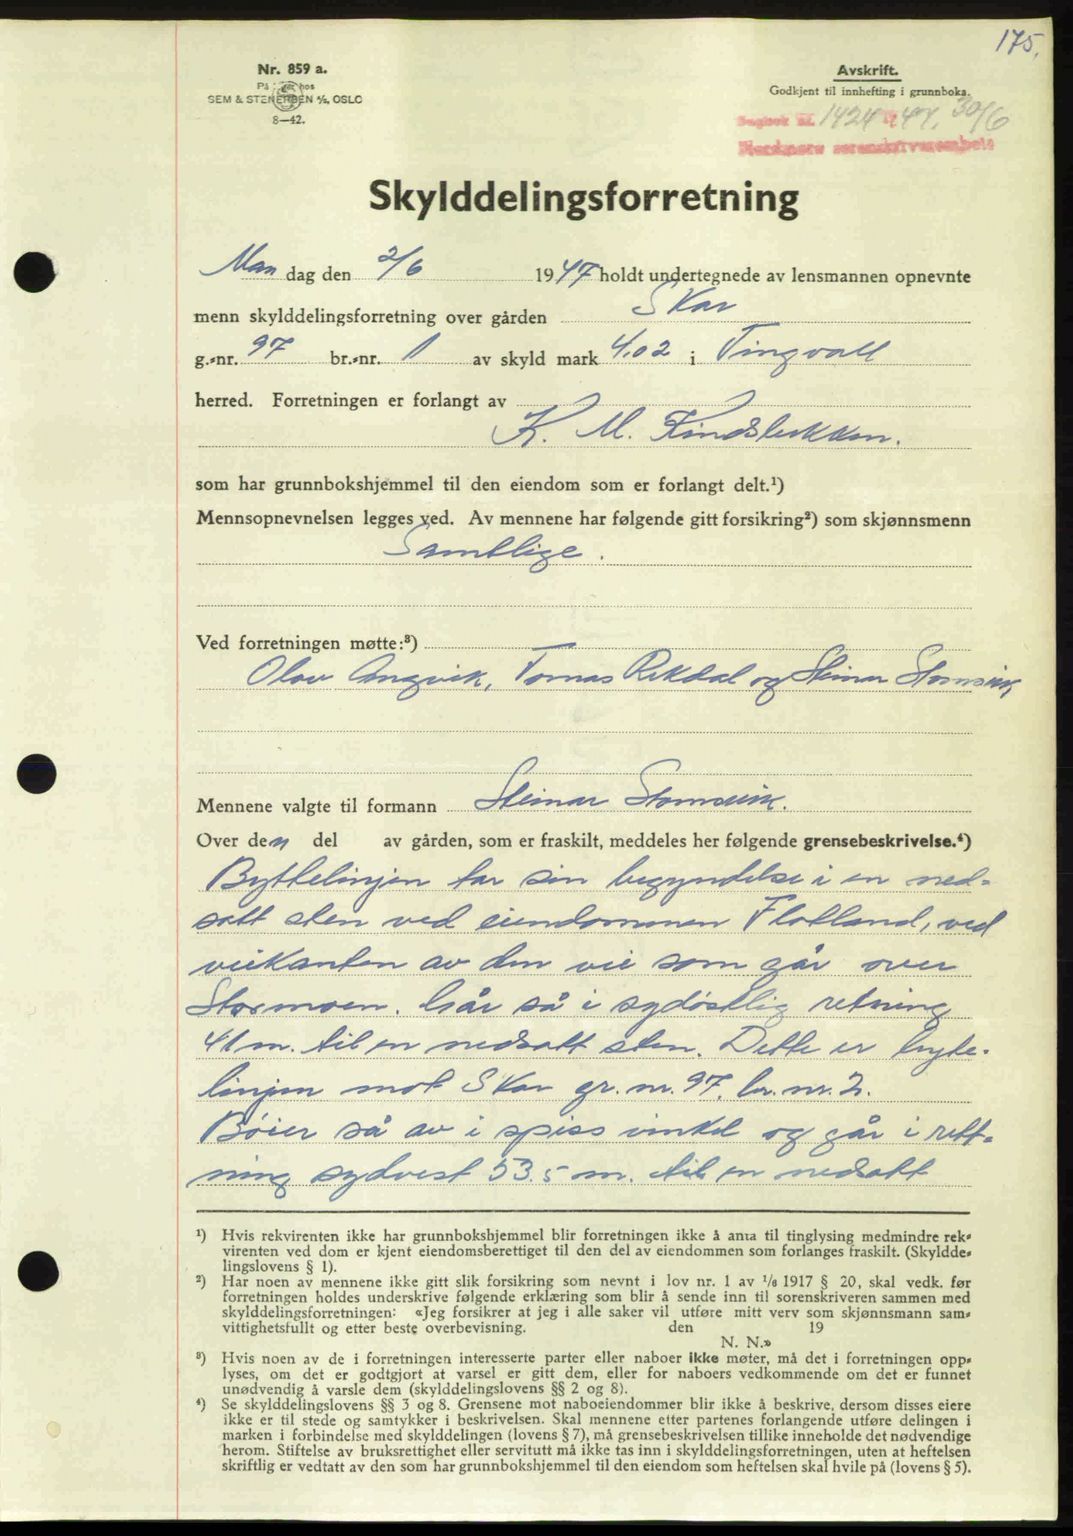 175.
Nr. 859 a.
På lager hos
SEM & STENERSEN A/S, OSLO
8—42.
Avskrift.
Godkjent til innhefting i grunnboka.
Dagbok nr. 1424 19 47. 30/6
Nordmøre sorenskriverembete
Skylddelingsforretning
Man dag den 2/6 1947 holdt undertegnede av lensmannen opnevnte
menn skylddelingsforretning over gården Skar
g.-nr. 97 br.-nr. 1 av skyld mark 4.02 i Tingvoll
herred. Forretningen er forlangt av
K. M.
som har grunnbokshjemmel til den eiendom som er forlangt delt.¹)
Mennsopnevnelsen legges ved. Av mennene har følgende gitt forsikring²) som skjønnsmenn
Samtlige.
Ved forretningen møtte:³)
Olav Angvik, Tomas Rikdal og Steinar Stormsvik
Mennene valgte til formann Steinar Stormsvik.
Over den del av gården, som er fraskilt, meddeles her følgende grensebeskrivelse.⁴)
Byttelinjen tar sin begyndelse i en ned-
satt sten ved eiendommen Flatland, ved
veikanten av den vei som går over
Stormoen. Går så i sydöstlig retning
41 m. til en nedsatt sten. Dette er byte-
linjen mot Skar gr. nr. 97, br. nr. 2.
Böier så av i spiss vinkel og går i rett-
ning sydvest 53.5 m. til en nedsatt
¹) Hvis rekvirenten ikke har grunnbokshjemmel blir forretningen ikke å anta til tinglysing medmindre rek-
virenten ved dom er kjent eiendomsberettiget til den del av eiendommen som forlanges fraskilt. (Skyldde-
lingslovens § 1).
²) Har noen av mennene ikke gitt slik forsikring som nevnt i lov nr. 1 av 1/6 1917 § 20, skal vedk. før
forretningen holdes underskrive følgende erklæring som blir å sende inn til sorenskriveren sammen med
skylddelingsforretningen: «Jeg forsikrer at jeg i alle saker vil utføre mitt verv som skjønnsmann sam-
vittighetsfullt og etter beste overbevisning. den 19
N. N.»
³) Hvis noen av de i forretningen interesserte parter eller naboer ikke møter, må det i forretningen opp-
lyses, om det er godtgjort at varsel er gitt dem, eller for naboers vedkommende om det er funnet
unødvendig å varsle dem (skylddelingslovens §§ 2 og 8).
⁴) Se skylddelingslovens §§ 3 og 8. Grensene mot naboeiendommer blir ikke å beskrive, dersom disses eiere
ikke er til stede og samtykker i beskrivelsen. Skal mennene etter partenes forlangende utføre delingen i
marken i forbindelse med skylddelingen (lovens § 7), må grensebeskrivelsen tillike inneholde det nødvendige
herom. Stiftelse av bruksrettighet eller servitutt må ikke tas inn i skylddelingsforretningen, uten at heftelsen
skriftlig er vedtatt av den som har grunnbokshjemmel til den eiendom som heftelsen skal hvile på (lovens § 5).